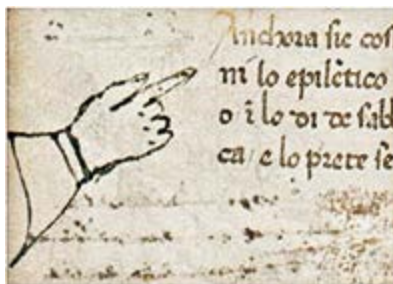 Anchora sic cos
ni lo epilẽtico
o ĩ lo di de sabb
ca / e lo prete se